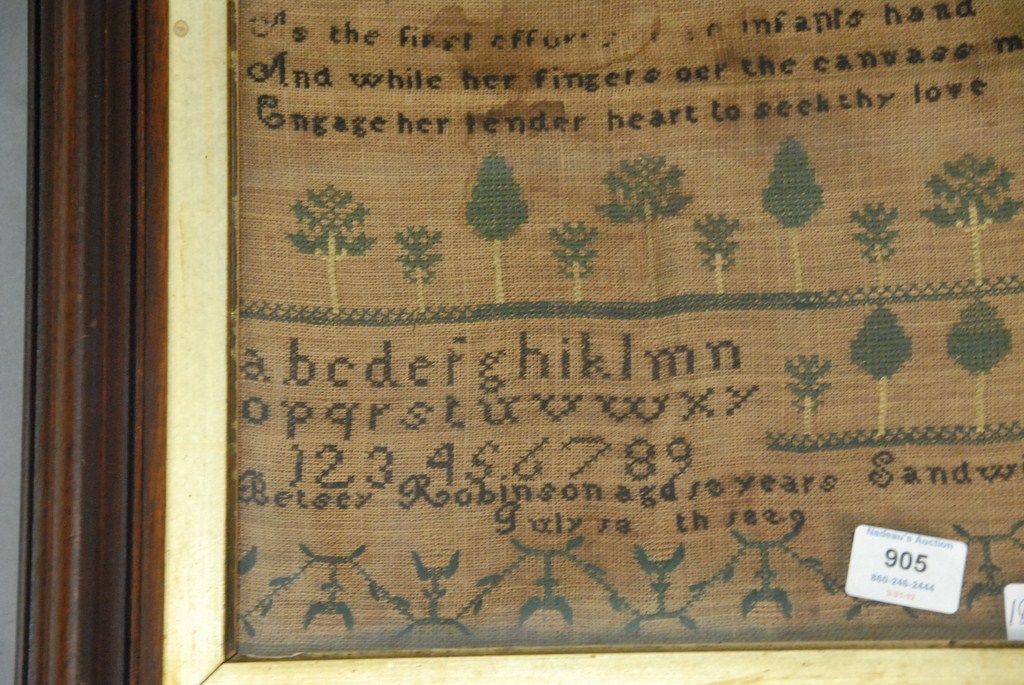 As the first efforts of an infants hand
And while her fingers oer the canvass m
Engage her tender heart to seek thy love
abcdefghiklmn
opqrstuvwxy
123456789
Betsey Robinson agd 10 years Sandwi
July th 1829
Nadeau's Auction
905
860-246-2444